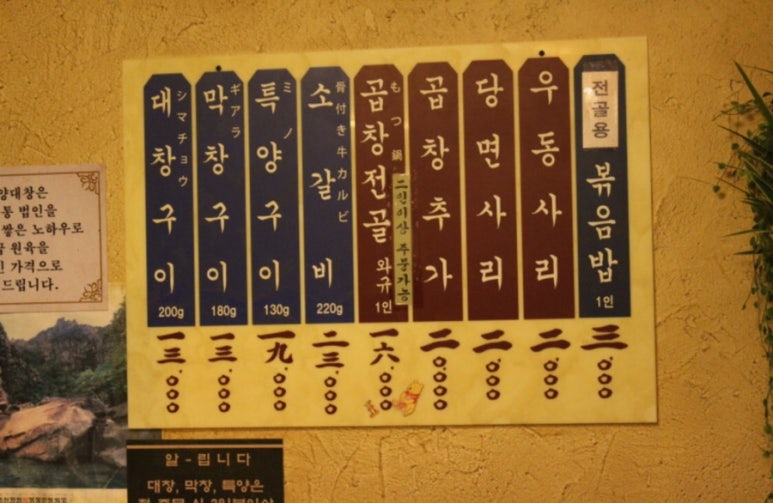 대창구이
シマチョウ
200g
一三.000
막창구이
ギアラ
180g
一三.000
특양구이
ミノ
130g
一九.000
소갈비
骨付き牛カルビ
220g
二三.000
곱창전골
もつ鍋
와규
1인
二인이상 주문가능
一六.000
곱창추가
二.0000
당면사리
二.000
우동사리
二.000
전골용
볶음밥
1인
三.000
양대창은
통 법인을
쌓은 노하우로
원육을
가격으로
드립니다.
알-립니다
대창, 막창, 특양은